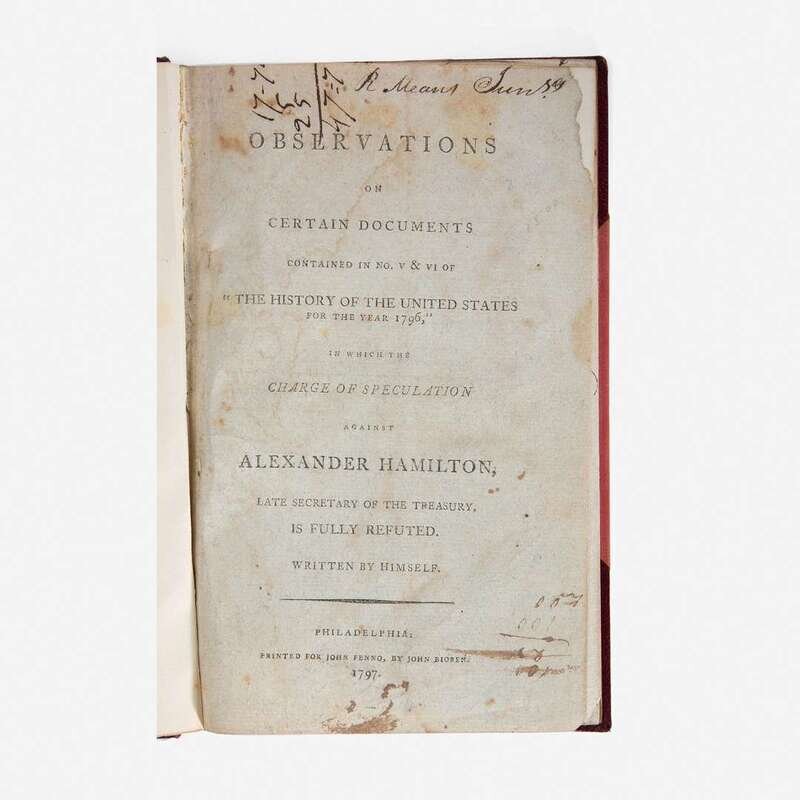 R Means Junr
17-7
5
25
47-7
OBSERVATIONS
ON
CERTAIN DOCUMENTS
CONTAINED IN NO. V & VI OF
"THE HISTORY OF THE UNITED STATES
FOR THE YEAR 1796,"
IN WHICH THE
CHARGE OF SPECULATION
AGAINST
ALEXANDER HAMILTON,
LATE SECRETARY OF THE TREASURY,
IS FULLY REFUTED.
WRITTEN BY HIMSELF.
PHILADELPHIA:
PRINTED FOR JOHN FENNO, BY JOHN BIOREN.
1797.